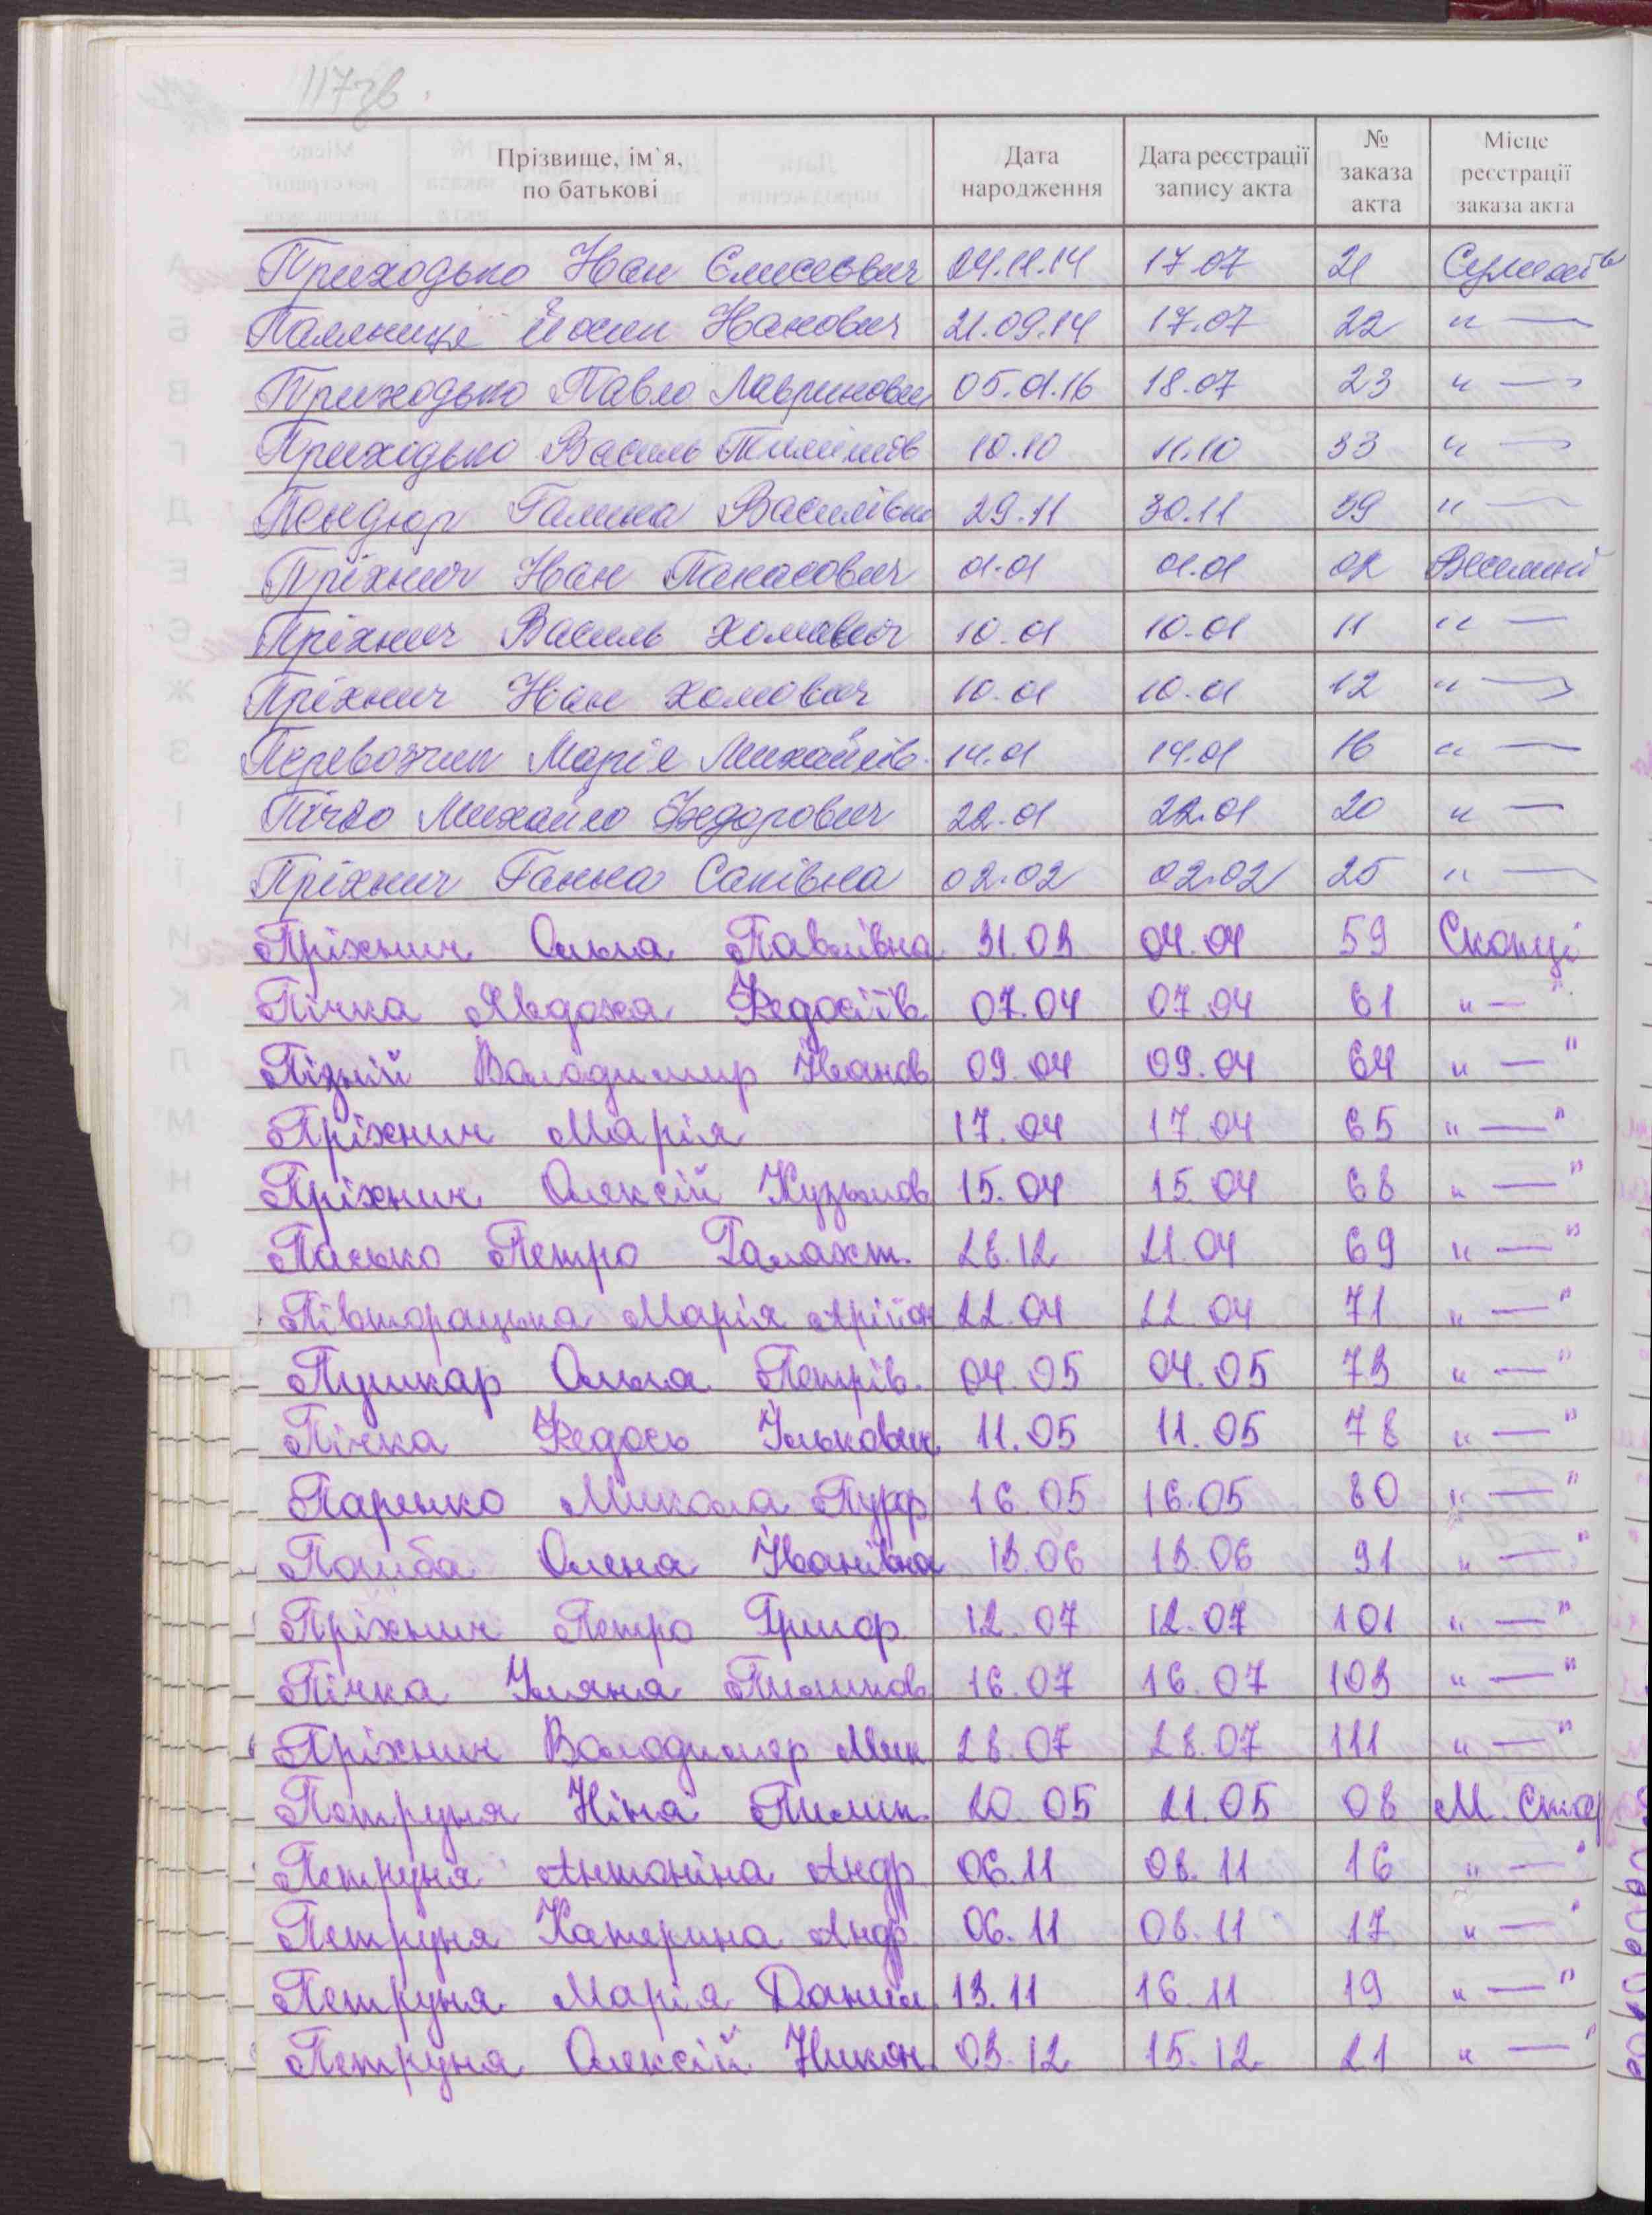 117зв.
Прізвище, ім`я, по батькові | Дата народження | Дата реєстрації запису акта | № заказа акта | Місце реєстрації заказа акта
Приходько Іван Єлисеєвич 24.11.14 17.07 21
Паляниця Йосип Іванович 21.09.14 17.07 22 " —
Приходько Павло Лавринович 05.01.16 18.07 23 " —
Приходько Василь Тимішов 10.10 11.10 33 " —
Пендюр Галина Василівна 29.11 30.11 39 " —
Пріхнич Іван Панасович 01.01 01.01 02
Пріхнич Василь Хомович 10.01 10.01 11 " —
Пріхнич Іван Хомович 10.01 10.01 12 " —
Перевозчик Марія Михайлів. 14.01 14.01 16 " —
Пічко Михайло Федорович 22.01 22.01 20 " —
Пріхнич Ганна Сапівна 02.02 02.02 25 " —
Пріхнич Ольга Павлівна 31.03 04.04 59 Скопці
Пічка Явдоха Федосіїв. 07.04 07.04 61 " — "
Пізній Володимир Іванов 09.04 09.04 64 " — "
Пріхнич Марія 17.04 17.04 65 " — "
Пріхнич Олексій Кузьмов 15.04 15.04 68 " — "
Пасько Петро Галахт. 28.12 21.04 69 " — "
Півторацька Марія 22.04 22.04 71 " — "
Пушкар Ольга Петрів. 04.05 04.05 73 " — "
Пічка Федось Ількович 11.05 11.05 78 " — "
Паренко Микола 16.05 16.05 80 " — "
Помба Олена Іванівна 13.06 13.06 91 " — "
Пріхнич Петро Григор. 12.07 12.07 101 " — "
Пічка Уляна Пилипов 16.07 16.07 103 " — "
Пріхнич Володимир Мик 28.07 28.07 111 " — "
Петруня Ніна Пилип. 20.05 21.05 08 М.
Петруня Антоніна Андр 06.11 08.11 16 " — "
Петруня Катерина Андр 06.11 08.11 17 " — "
Петруня Марія Данил. 13.11 16.11 19 " — "
Петруня Олексій Никон. 03.12 15.12 21 " — "